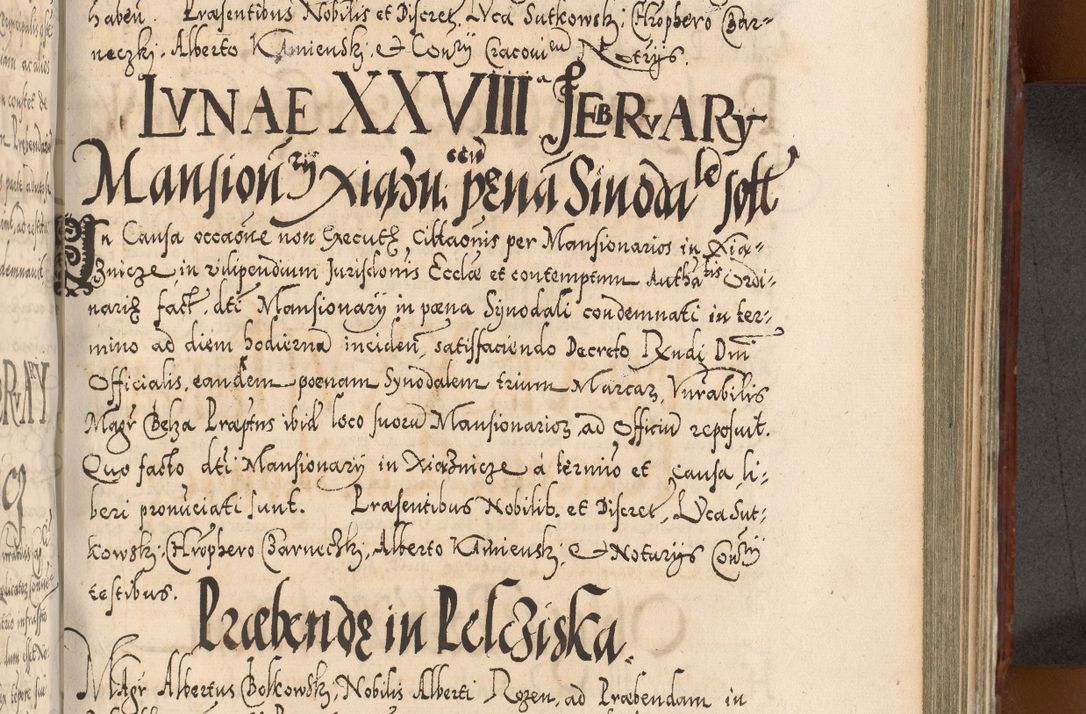 haben. Præsentibus Nobilis et Discret. Lvca Sutkowskj, Chrophero Bar-
neczkj, Alberto Kamienskj, & Consrÿ Cracovien Notrÿs.
LVNAE XXVIII FEBRVARÿ
Mansionrÿ Xiąznicen pęnā Sinodale solt
In Causa occaõne non Executę Cittaõnis per Mansionarios in Xią-
znicze in vilipendium Jurisdonis Ecclæ et contemptum Authatis Ordi-
narię fact. dti Mansionarÿ in pœna Synodali condemnati in ter-
mino ad diem hodiernā inciden, satisfaciendo Decreto Rxndj Dni
Officialis, eandem pœnam Synodalem trium Marcaz, Vnrabilis
Magr Belza Præptus ibid loco suorū Mansionarioz, ad Officiū reposuit.
Quo facto dti Mansionarÿ in Xiąznicze á termino et causa li-
beri pronūciati sunt. Præsentibus Nobilib. et Discret, Lvca Sut-
kowskj, Chrophero Barneczkj, Alberto Kamienskj, & Noturÿs Consrÿ
testibus.
Præbendę in Pelcziska.
Magr Albertus Bolkowskj, Nobilis Alberti Rozen, ad Præbendam in